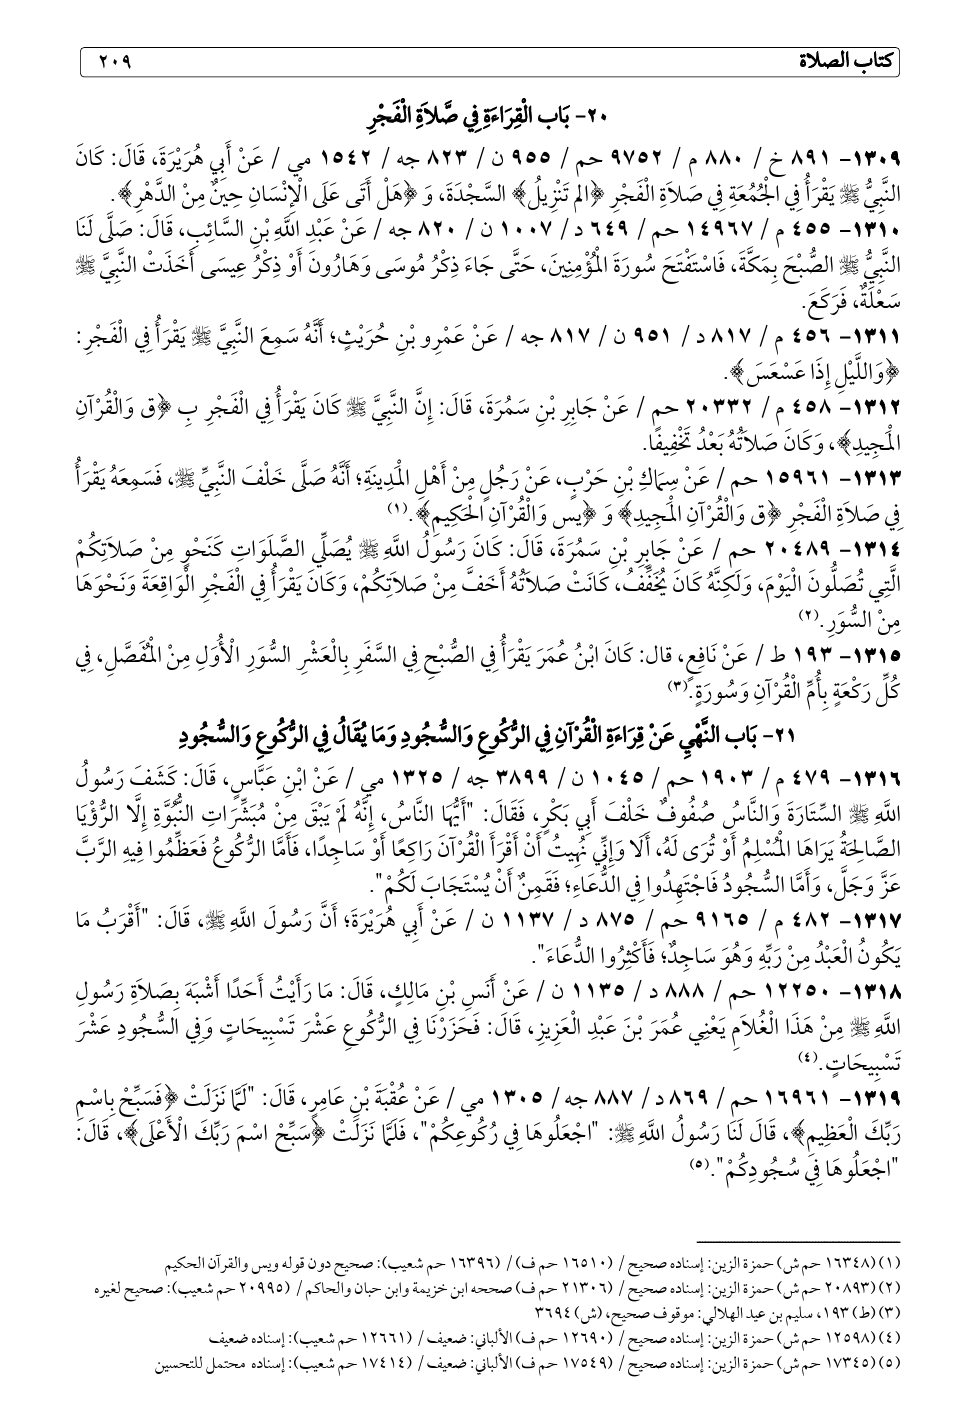 كتاب الصلاة ٢٠٩
٢٠- بَاب الْقِرَاءَةِ فِي صَّلاَةِ الْفَجْرِ
١٣٠٩- ٨٩١ خ / ٨٨٠ م / ٩٧٥٢ حم / ٩٥٥ ن / ٨٢٣ جه / ١٥٤٢ مي / عَنْ أَبِي هُرَيْرَةَ، قَالَ: كَانَ
النَّبِيُّ ﷺ يَقْرَأُ فِي الْجُمُعَةِ فِي صَلاَةِ الْفَجْرِ ﴿الم تَنْزِيلُ﴾ السَّجْدَةَ، وَ ﴿هَلْ أَتَى عَلَى الْإِنْسَانِ حِينٌ مِنْ الدَّهْرِ﴾.
١٣١٠- ٤٥٥ م / ١٤٩٦٧ حم / ٦٤٩ د / ١٠٠٧ ن / ٨٢٠ جه / عَنْ عَبْدِ اللَّهِ بْنِ السَّائِبِ، قَالَ: صَلَّى لَنَا
النَّبِيُّ ﷺ الصُّبْحَ بِمَكَّةَ، فَاسْتَفْتَحَ سُورَةَ الْمُؤْمِنِينَ، حَتَّى جَاءَ ذِكْرُ مُوسَى وَهَارُونَ أَوْ ذِكْرُ عِيسَى أَخَذَتْ النَّبِيَّ ﷺ
سَعْلَةٌ، فَرَكَعَ.
١٣١١- ٤٥٦ م / ٨١٧ د / ٩٥١ ن / ٨١٧ جه / عَنْ عَمْرِو بْنِ حُرَيْثٍ؛ أَنَّهُ سَمِعَ النَّبِيَّ ﷺ يَقْرَأُ فِي الْفَجْرِ:
﴿وَاللَّيْلِ إِذَا عَسْعَسَ﴾.
١٣١٢- ٤٥٨ م / ٢٠٣٣٢ حم / عَنْ جَابِرِ بْنِ سَمُرَةَ، قَالَ: إِنَّ النَّبِيَّ ﷺ كَانَ يَقْرَأُ فِي الْفَجْرِ بِ ﴿ق وَالْقُرْآنِ
الْمَجِيدِ﴾، وَكَانَ صَلاَتُهُ بَعْدُ تَخْفِيفًا.
١٣١٣- ١٥٩٦١ حم / عَنْ سِمَاكِ بْنِ حَرْبٍ، عَنْ رَجُلٍ مِنْ أَهْلِ الْمَدِينَةِ؛ أَنَّهُ صَلَّى خَلْفَ النَّبِيِّ ﷺ، فَسَمِعَهُ يَقْرَأُ
فِي صَلاَةِ الْفَجْرِ ﴿ق وَالْقُرْآنِ الْمَجِيدِ﴾ وَ ﴿يس وَالْقُرْآنِ الْحَكِيمِ﴾.(١)
١٣١٤- ٢٠٤٨٩ حم / عَنْ جَابِرِ بْنِ سَمُرَةَ، قَالَ: كَانَ رَسُولُ اللَّهِ ﷺ يُصَلِّي الصَّلَوَاتِ كَنَحْوٍ مِنْ صَلاَتِكُمْ
الَّتِي تُصَلُّونَ الْيَوْمَ، وَلَكِنَّهُ كَانَ يُخَفِّفُ، كَانَتْ صَلاَتُهُ أَخَفَّ مِنْ صَلاَتِكُمْ، وَكَانَ يَقْرَأُ فِي الْفَجْرِ الْوَاقِعَةَ وَنَحْوَهَا
مِنْ السُّوَرِ.(٢)
١٣١٥- ١٩٣ ط / عَنْ نَافِعٍ، قال: كَانَ ابْنُ عُمَرَ يَقْرَأُ فِي الصُّبْحِ فِي السَّفَرِ بِالْعَشْرِ السُّوَرِ الْأُوَلِ مِنْ الْمُفَصَّلِ، فِي
كُلِّ رَكْعَةٍ بِأُمِّ الْقُرْآنِ وَسُورَةٍ.(٣)
٢١- بَاب النَّهْيِ عَنْ قِرَاءَةِ الْقُرْآنِ فِي الرُّكُوعِ وَالسُّجُودِ وَمَا يُقَالُ فِي الرُّكُوعِ وَالسُّجُودِ
١٣١٦- ٤٧٩ م / ١٩٠٣ حم / ١٠٤٥ ن / ٣٨٩٩ جه / ١٣٢٥ مي / عَنْ ابْنِ عَبَّاسٍ، قَالَ: كَشَفَ رَسُولُ
اللَّهِ ﷺ السِّتَارَةَ وَالنَّاسُ صُفُوفٌ خَلْفَ أَبِي بَكْرٍ، فَقَالَ: "أَيُّهَا النَّاسُ، إِنَّهُ لَمْ يَبْقَ مِنْ مُبَشِّرَاتِ النُّبُوَّةِ إِلَّا الرُّؤْيَا
الصَّالِحَةُ يَرَاهَا الْمُسْلِمُ أَوْ تُرَى لَهُ، أَلَا وَإِنِّي نُهِيتُ أَنْ أَقْرَأَ الْقُرْآنَ رَاكِعًا أَوْ سَاجِدًا، فَأَمَّا الرُّكُوعُ فَعَظِّمُوا فِيهِ الرَّبَّ
عَزَّ وَجَلَّ، وَأَمَّا السُّجُودُ فَاجْتَهِدُوا فِي الدُّعَاءِ؛ فَقَمِنٌ أَنْ يُسْتَجَابَ لَكُمْ".
١٣١٧- ٤٨٢ م / ٩١٦٥ حم / ٨٧٥ د / ١١٣٧ ن / عَنْ أَبِي هُرَيْرَةَ؛ أَنَّ رَسُولَ اللَّهِ ﷺ، قَالَ: "أَقْرَبُ مَا
يَكُونُ الْعَبْدُ مِنْ رَبِّهِ وَهُوَ سَاجِدٌ؛ فَأَكْثِرُوا الدُّعَاءَ".
١٣١٨- ١٢٢٥٠ حم / ٨٨٨ د / ١١٣٥ ن / عَنْ أَنَسِ بْنِ مَالِكٍ، قَالَ: مَا رَأَيْتُ أَحَدًا أَشْبَهَ بِصَلاَةِ رَسُولِ
اللَّهِ ﷺ مِنْ هَذَا الْغُلاَمِ يَعْنِي عُمَرَ بْنَ عَبْدِ الْعَزِيزِ، قَالَ: فَحَزَرْنَا فِي الرُّكُوعِ عَشْرَ تَسْبِيحَاتٍ وَفِي السُّجُودِ عَشْرَ
تَسْبِيحَاتٍ.(٤)
١٣١٩- ١٦٩٦١ حم / ٨٦٩ د / ٨٨٧ جه / ١٣٠٥ مي / عَنْ عُقْبَةَ بْنِ عَامِرٍ، قَالَ: "لَمَّا نَزَلَتْ ﴿فَسَبِّحْ بِاسْمِ
رَبِّكَ الْعَظِيمِ﴾، قَالَ لَنَا رَسُولُ اللَّهِ ﷺ: "اجْعَلُوهَا فِي رُكُوعِكُمْ"، فَلَمَّا نَزَلَتْ ﴿سَبِّحْ اسْمَ رَبِّكَ الْأَعْلَى﴾، قَالَ:
"اجْعَلُوهَا فِي سُجُودِكُمْ".(٥)
(١) (١٦٣٤٨ حم ش) حمزة الزين: إسناده صحيح / (١٦٥١٠ حم ف) / (١٦٣٩٦ حم شعيب): صحيح دون قوله ويس والقرآن الحكيم
(٢) (٢٠٨٩٣ حم ش) حمزة الزين: إسناده صحيح / (٢١٣٠٦ حم ف) صححه ابن خزيمة وابن حبان والحاكم / (٢٠٩٩٥ حم شعيب): صحيح لغيره
(٣) (ط) ١٩٣، سليم بن عيد الهلالي: موقوف صحيح، (ش) ٣٦٩٤
(٤) (١٢٥٩٨ حم ش) حمزة الزين: إسناده صحيح / (١٢٦٩٠ حم ف) الألباني: ضعيف / (١٢٦٦١ حم شعيب): إسناده ضعيف
(٥) (١٧٣٤٥ حم ش) حمزة الزين: إسناده صحيح / (١٧٥٤٩ حم ف) الألباني: ضعيف / (١٧٤١٤ حم شعيب): إسناده محتمل للتحسين